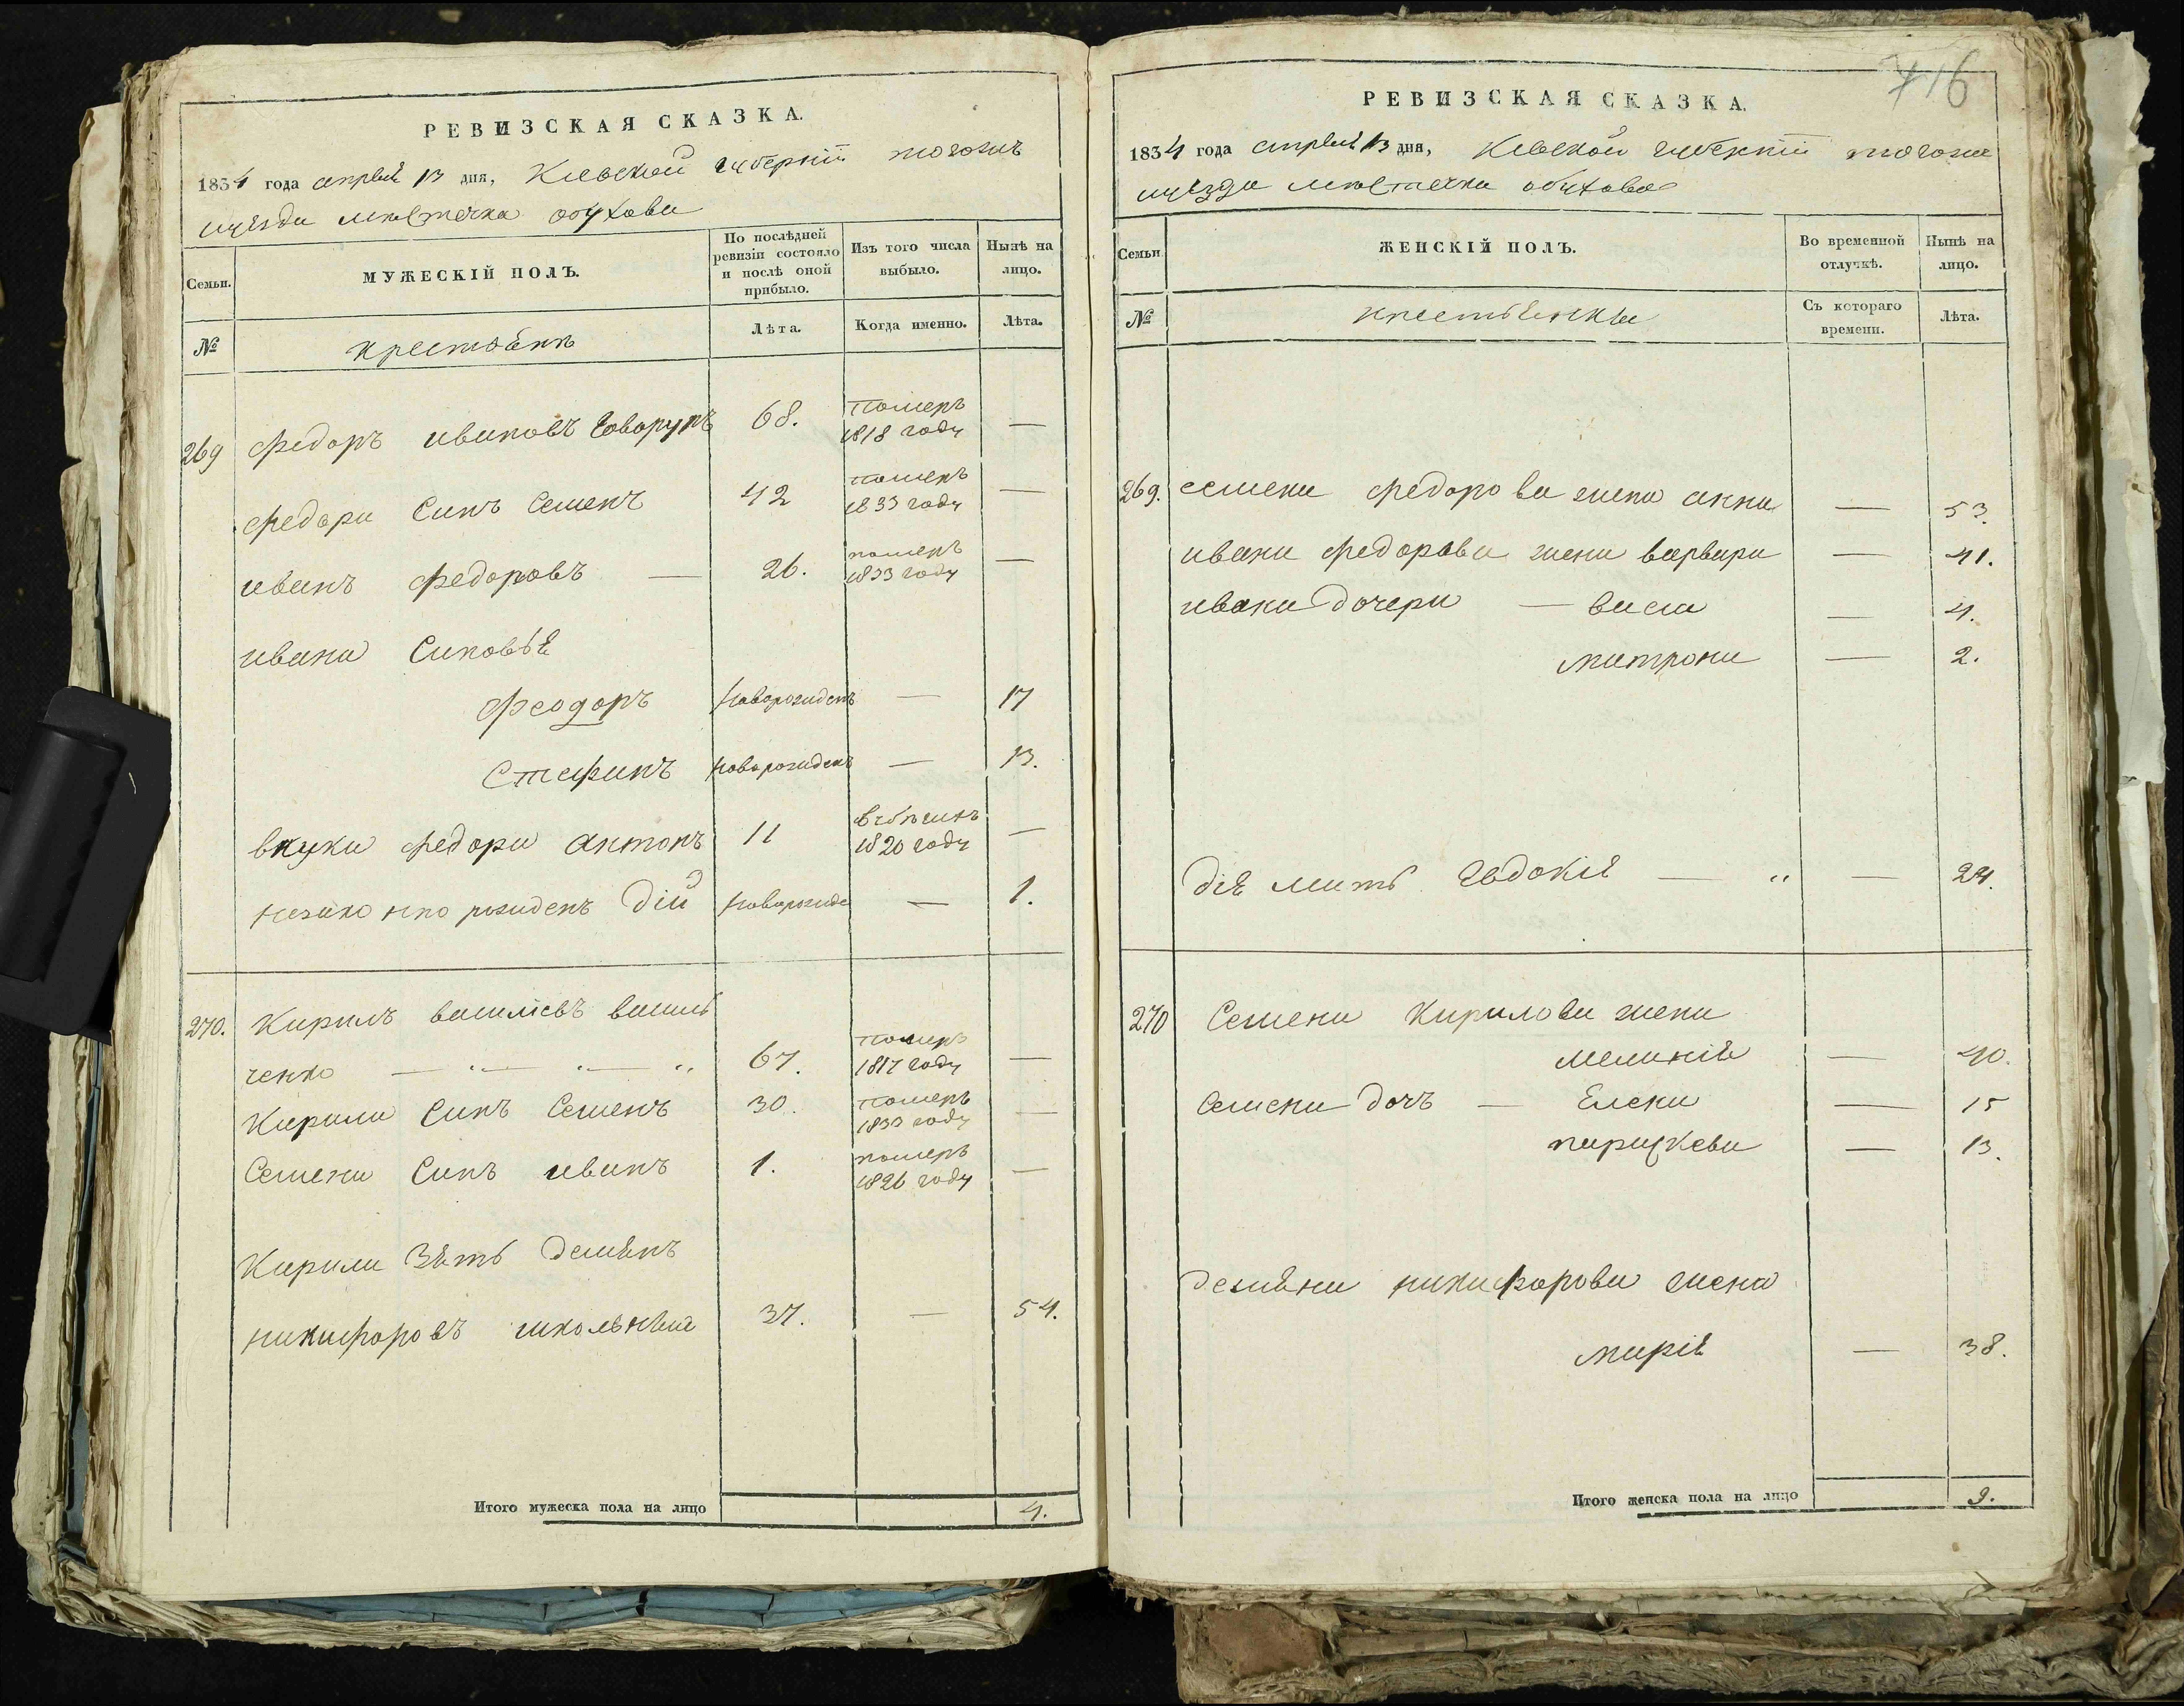 РЕВИЗСКАЯ СКАЗКА.
1834 года апреля 13 дня, Киевской губернии тогожъ
уѣзда местечка обухова
Семьи.
МУЖЕСКІЙ ПОЛЪ.
По послѣдней
ревизіи состояло
и послѣ оной
прибыло.
Изъ того числа
выбыло.
Нынѣ на
лицо.
№
крестьянъ
Лѣта.
Когда именно.
Лѣта.
269 Федоръ ивановъ Говорунъ 68. померъ
1818 году —
Федора Синъ Семенъ 42 померъ
1833 году —
иванъ Федоровъ — 26. померъ
1833 году —
ивана Синовья
Феодоръ новорожденъ — 17
Стефанъ новорожденъ — 13.
внукъ Федора антонъ 11
1820 году —
незаконно рожденъ Дій новорожде — 1.
270. Кирилъ василіевъ василь
ченко — 67. померъ
1817 году —
Кирила Синъ Семенъ 30. померъ
1833 году —
Семена Синъ иванъ 1. померъ
1826 году —
Кирила Зять Демянъ
никифоровъ 37. — 54.
Итого мужеска пола на лицо 4.
716
РЕВИЗСКАЯ СКАЗКА.
1834 года апреля 13 дня, Киевской губернии тогожъ
уѣзда местечка обухова
Семьи.
ЖЕНСКІЙ ПОЛЪ.
Во временной
отлучкѣ.
Нынѣ на
лицо.
№
крестьянки
Съ котораго
времени.
Лѣта.
269. семена федорова жена анна — 53.
ивана федорова жена варвара — 41.
ивана дочери — васса — 4.
матрона — 2.
Дія мать Евдокія — „ — 24.
270 Семена Кирилова жена
меланія — 40.
Семена дочъ — Елена — 15
параскева — 13.
демяна никифорова жена
марія — 38.
Итого женска пола на лицо 9.